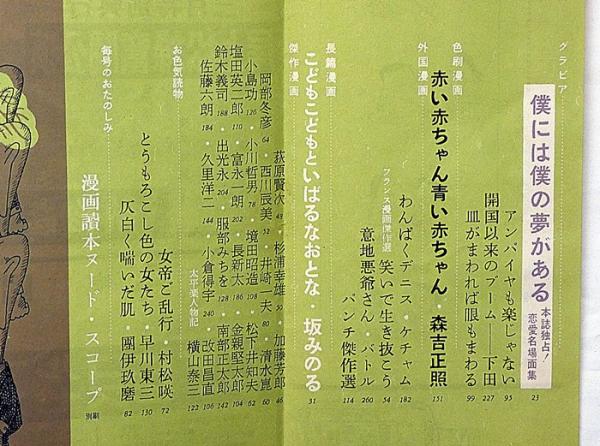 グラビア
僕には僕の夢がある 本誌独占!恋愛名場面集 23
アンパイヤも楽じゃない 95
開国以来のブーム――下田 227
皿がまわれば眼もまわる 99
色刷漫画
赤い赤ちゃん青い赤ちゃん・森吉正照 151
外国漫画
わんぱくデニス・ケチャム 182
フランス漫画傑作選 笑いで生き抜こう 54
意地悪爺さん・バトル 260
パンチ傑作選 114
長篇漫画
こどもこどもといばるなおとな 坂みのる 31
傑作漫画
荻原賢次 43・杉浦幸雄 50・加藤芳郎 46
岡部冬彦 64・西川辰美 32・井崎一夫 80・清水崑 60
小島功 126・小川哲男 78・境田昭造 108・松下井知夫 62
塩田英二郎 110・富永一朗 202・長新太 186・金親堅太郎 104
鈴木義司 188・出光永 204・服部みちを 128・南部正太郎 144
佐藤六朗 184・久里洋二 144・小倉得宇 240・改田昌直 106
太平楽人物記 横山泰三 122
お色気読物
女帝ご乱行・村松暎 72
とうもろこし色の女たち・早川東三 130
仄白く喘いだ肌・團伊玖磨 82
毎号のおたのしみ
漫画讀本ヌード・スコープ 別刷